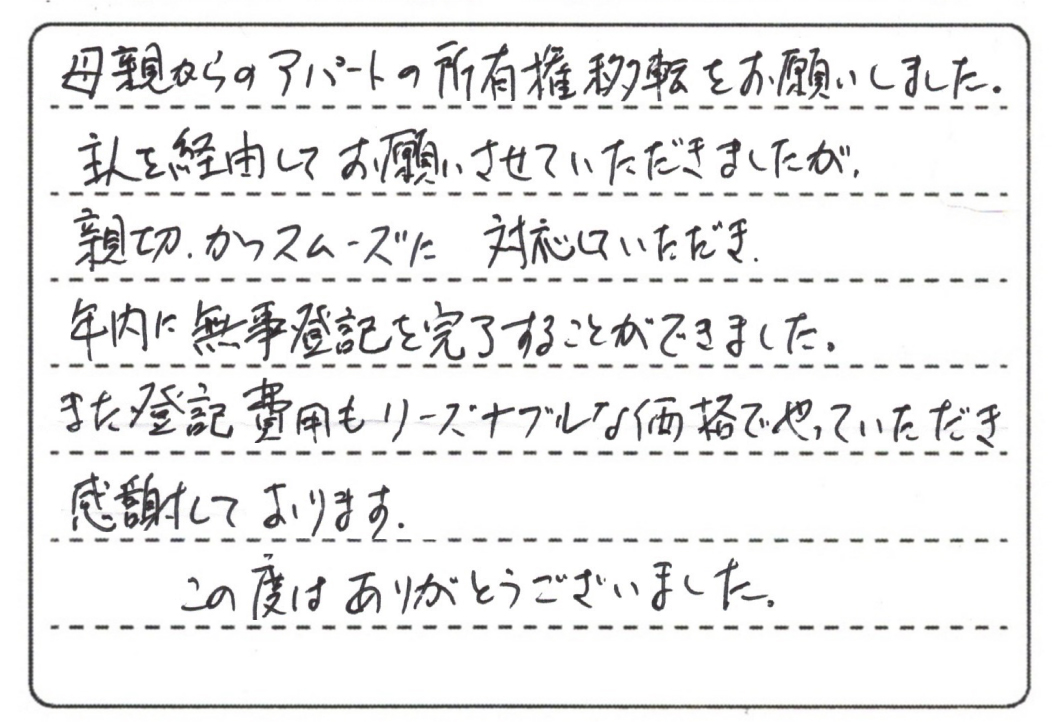 母親からのアパートの所有権移転をお願いしました。
主人を経由してお願いさせていただきましたが、
親切、かつスムーズに 対応していただき、
年内に無事登記を完了することができました。
また登記費用もリーズナブルな価格でやっていただき
感謝しております。
この度はありがとうございました。